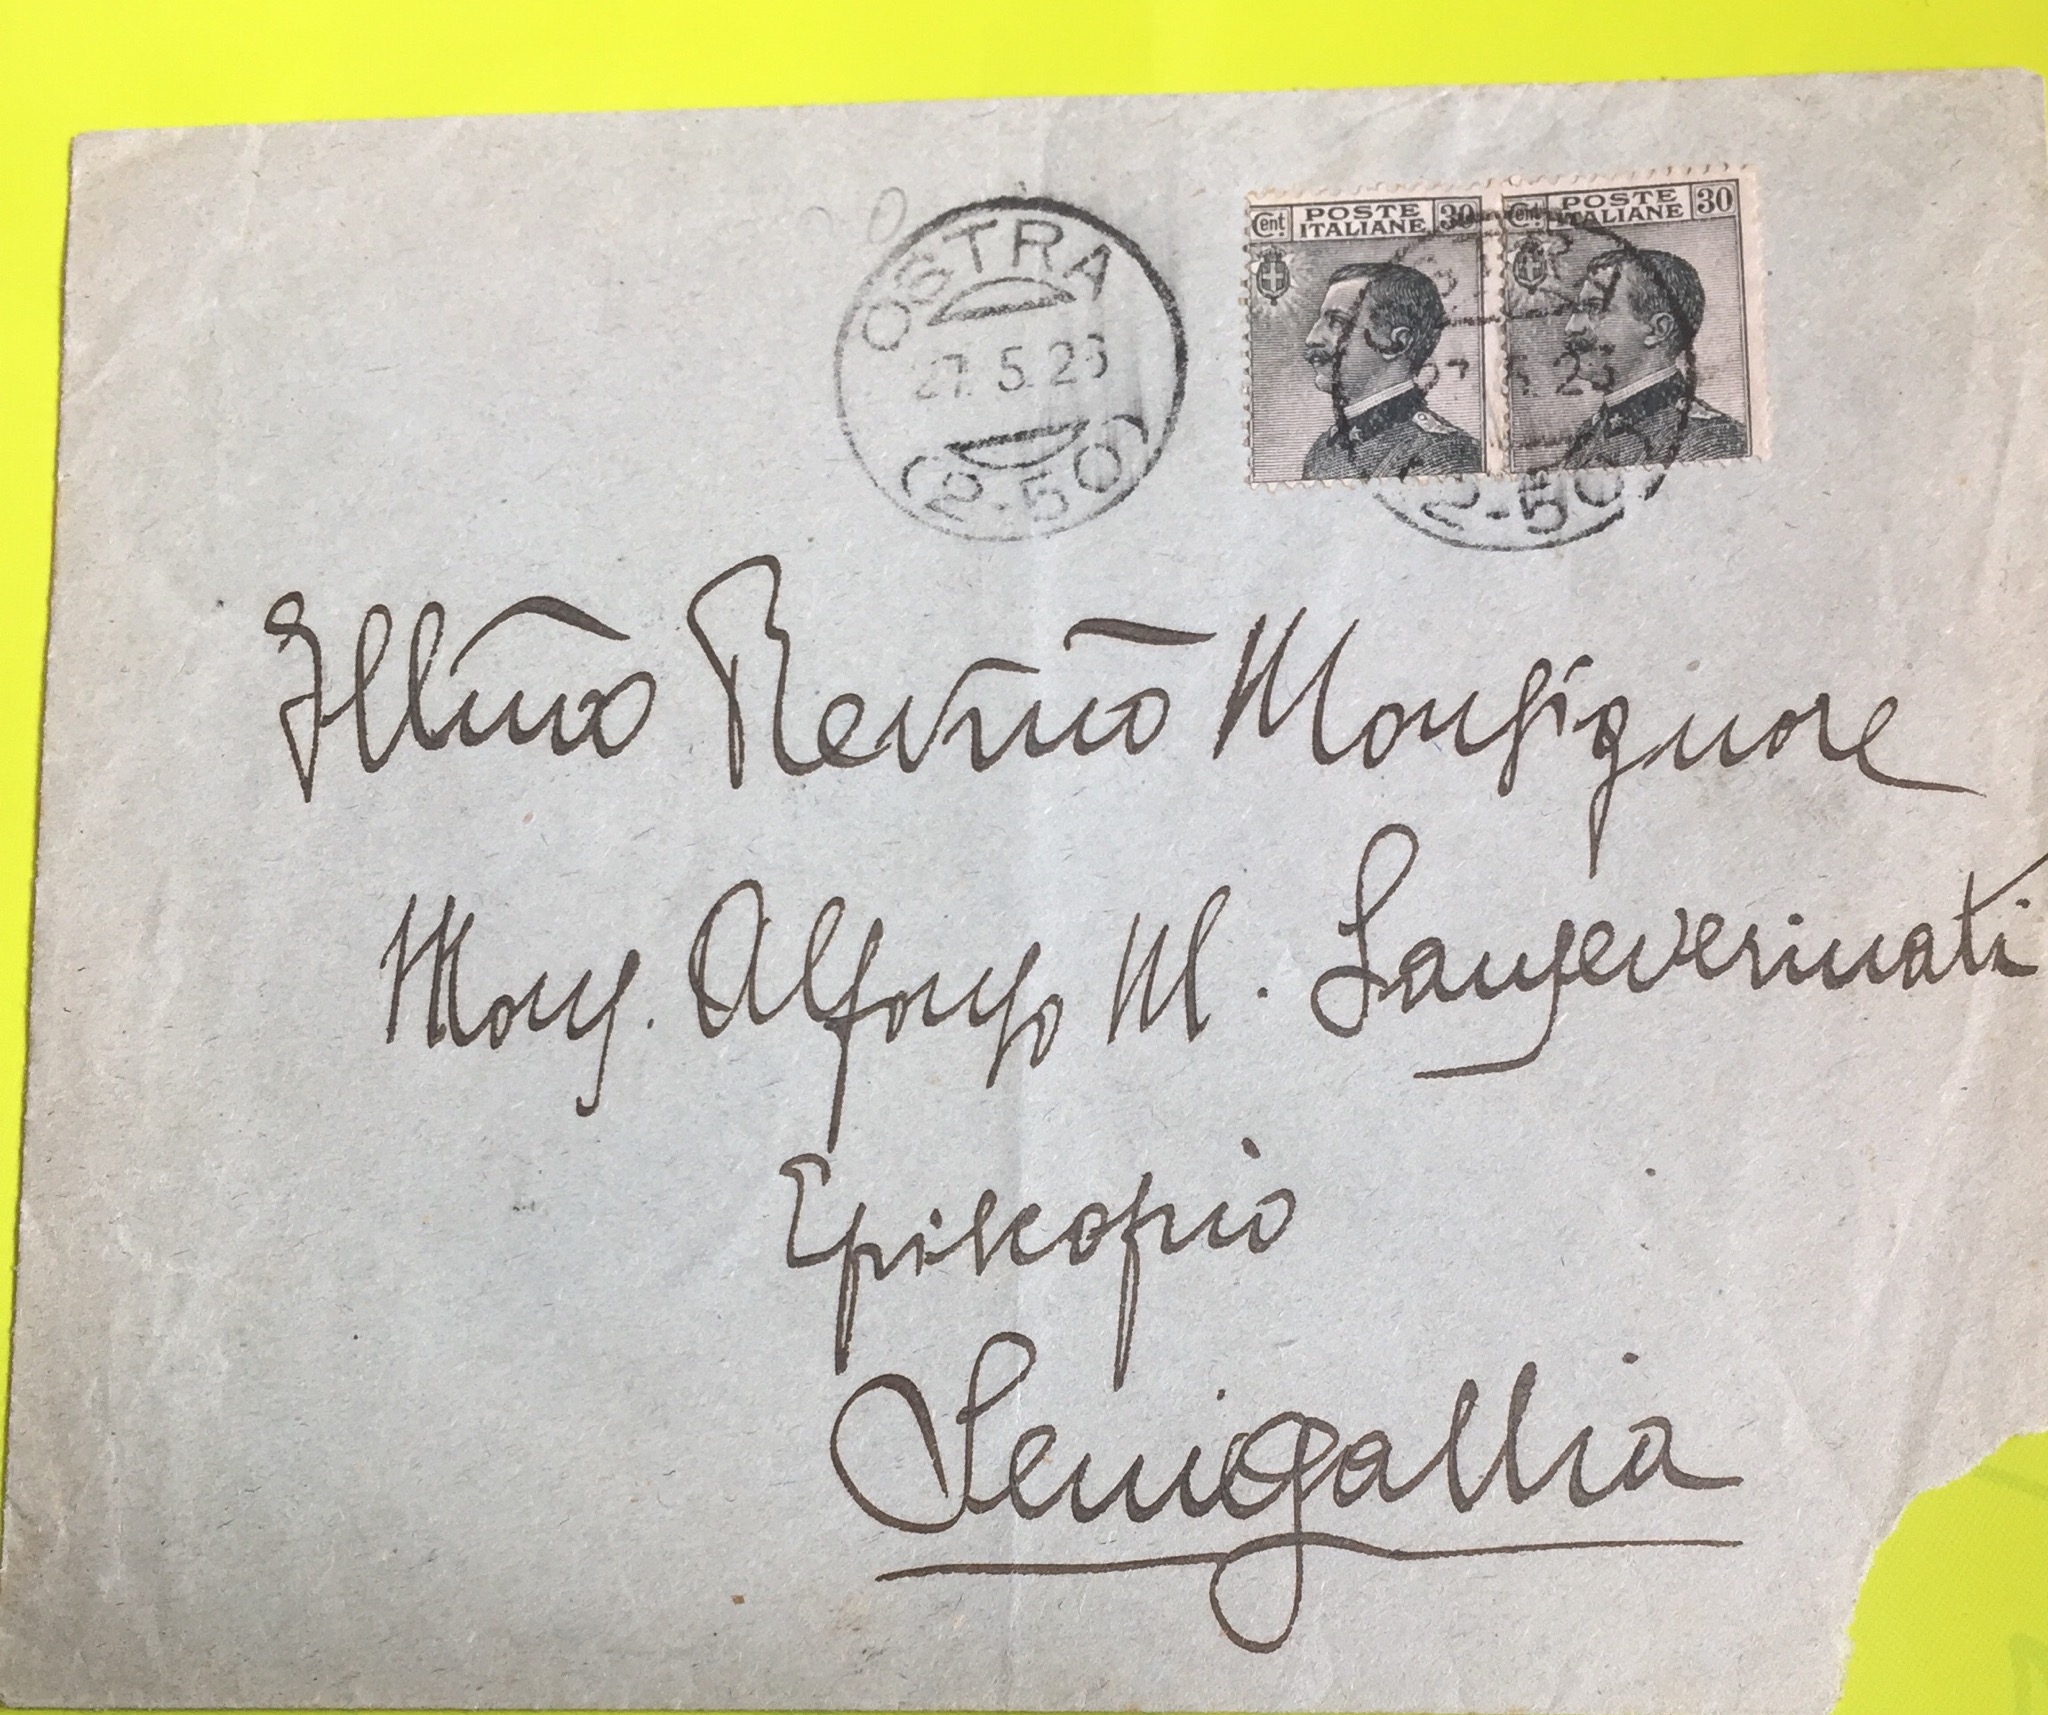 OSTRA
27.5.23
(2-50)
Cent. POSTE ITALIANE 30
Cent. POSTE ITALIANE 30
(2-50)
Illmo Revmo Monsignore
Mons. Alfonso M. Sanseverinati
Episcopio
Senigallia